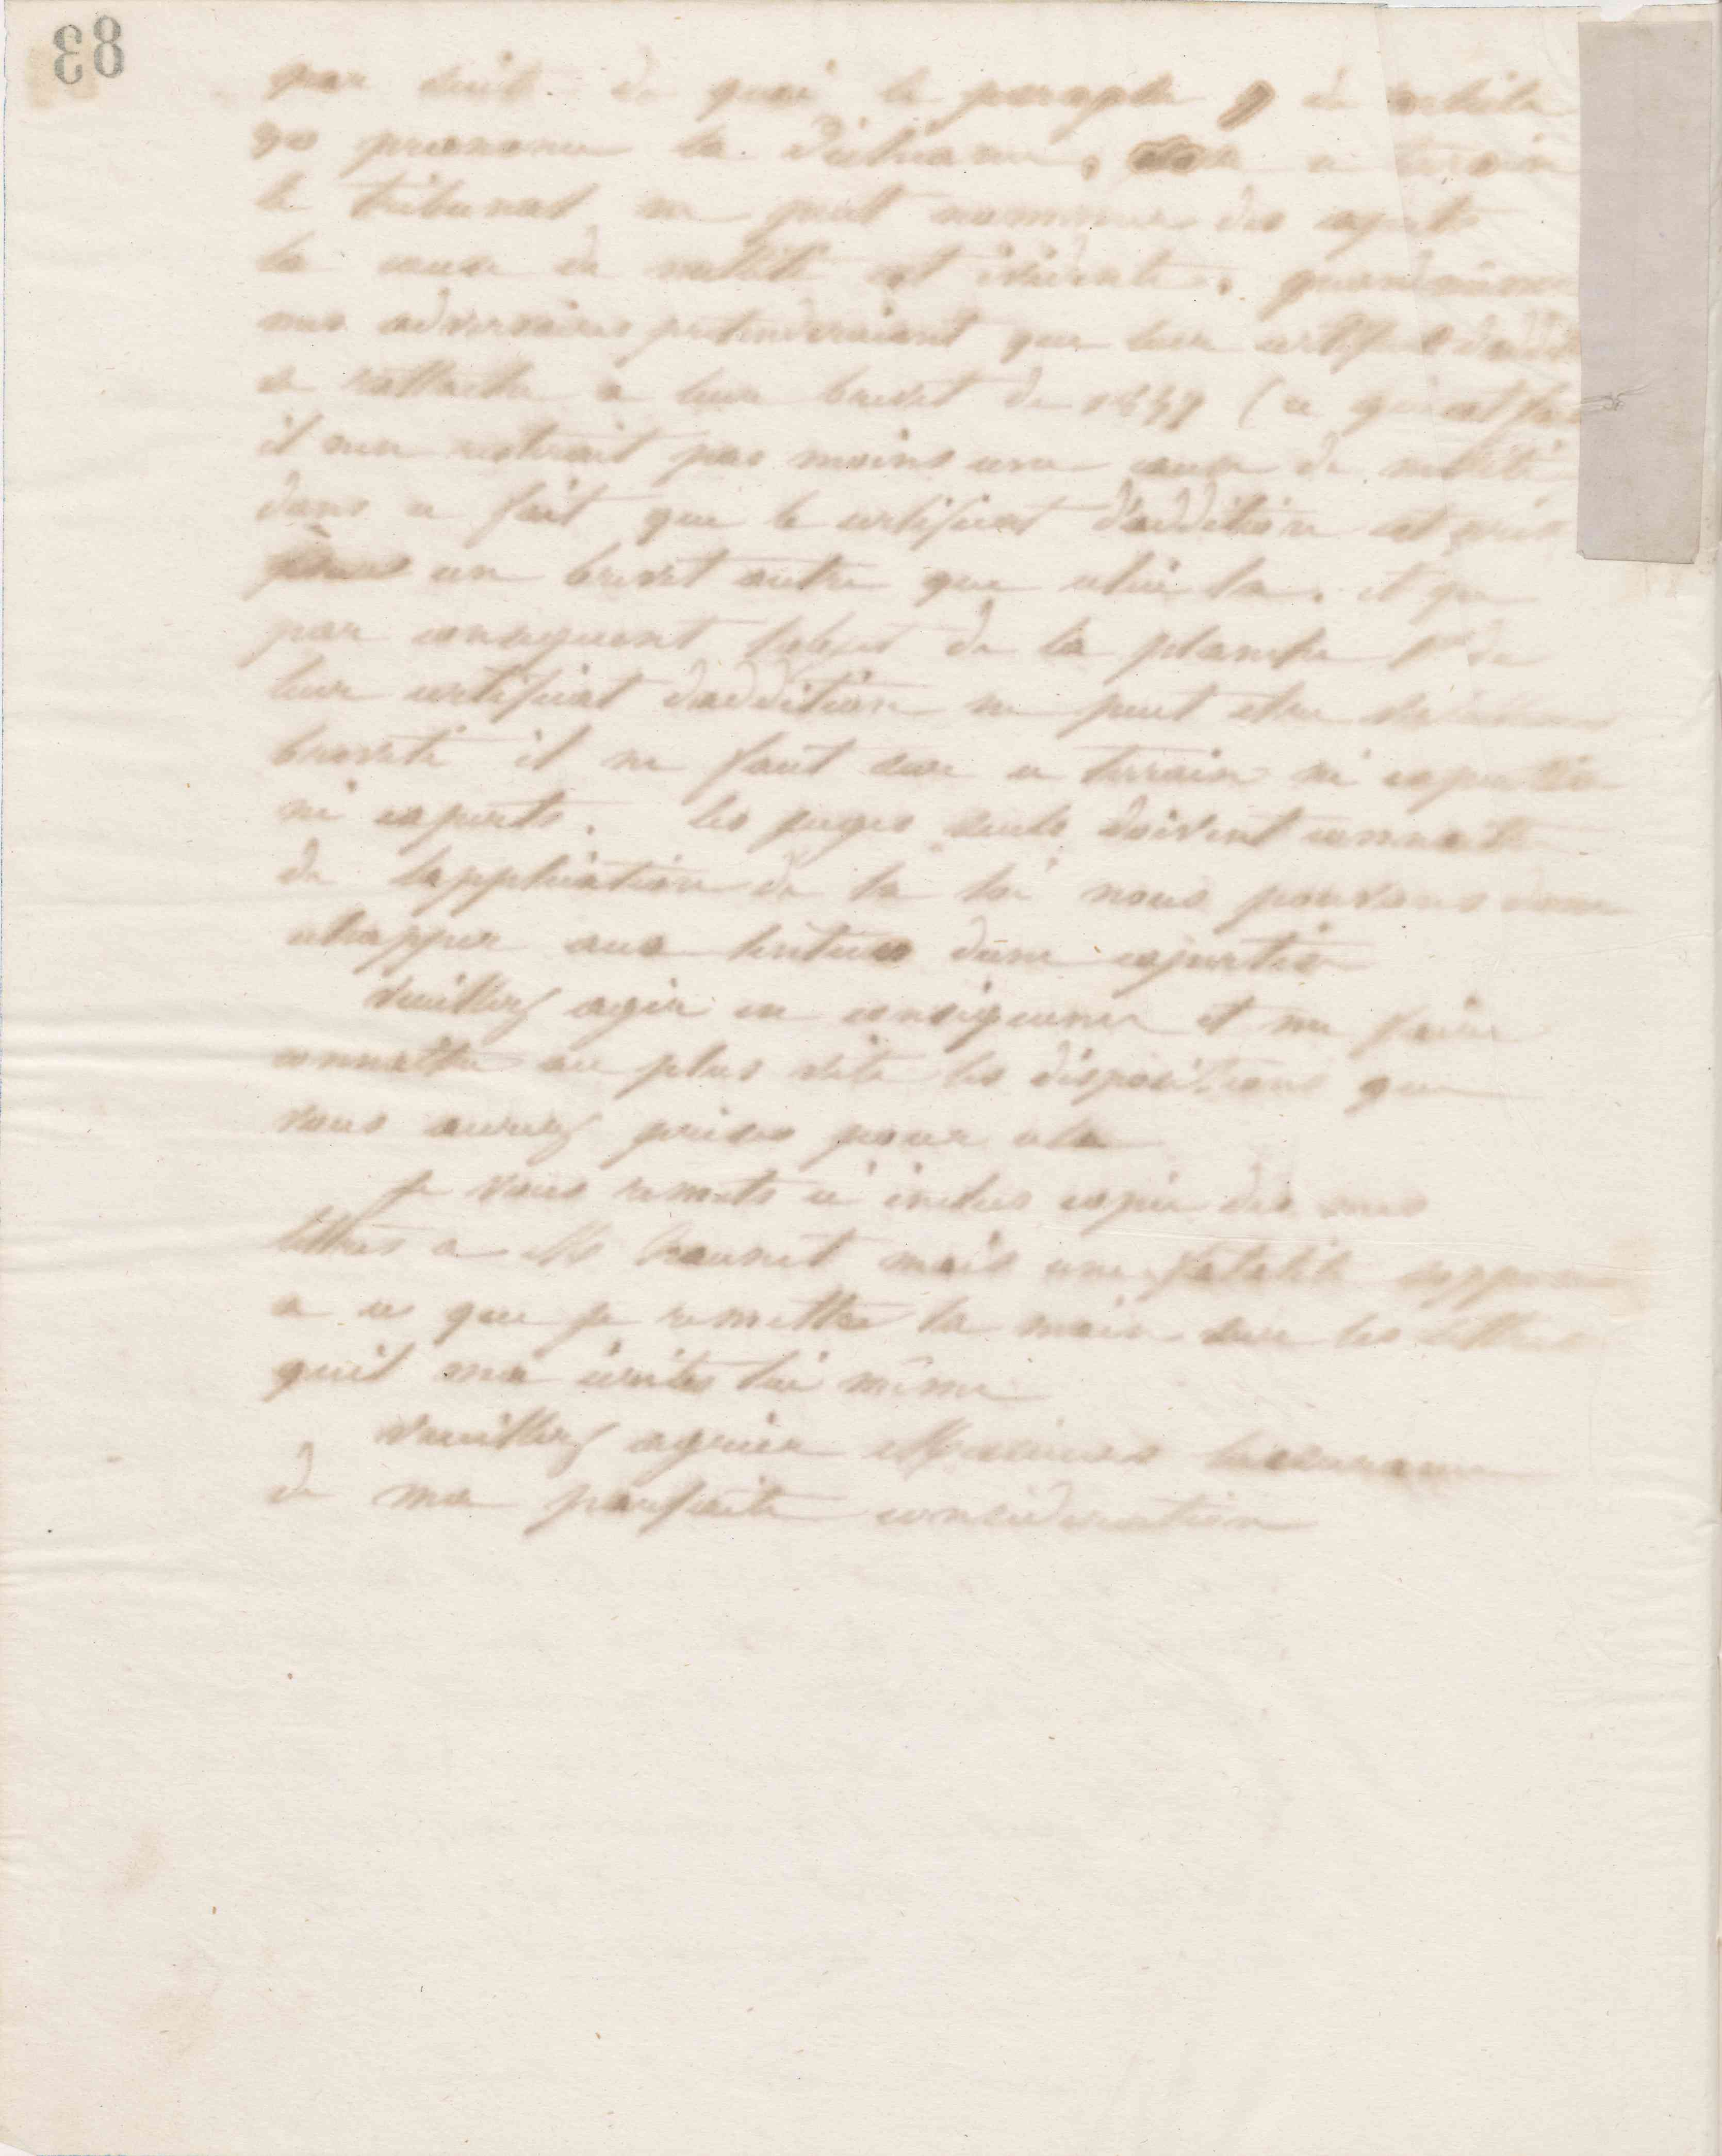 83
par suite de quoi le paragraphe 7 de l'article
30 prononce la déchéance, sur ce terrain
le tribunal ne peut nommer des experts
la cause de nullité est évidente. quand même
nos adversaires prétenderaient que leur certificat d'addition
se rattache a leur brevet de 1849 (ce qui est faux
il n'en resterait pas moins une cause de nullité
dans ce fait que le certificat d'addition est pris
pour un brevet autre que celui la. et que
par consequent l'objet de la planche 1re de
leur certificat d'addition ne peut etre
breveté il ne faut sur ce terrain ni expertise
ni experts. les juges seuls doivent connaitre
de l'application de la loi nous pouvons donc
echapper aux lenteurs d'une expertise
Veuillez agir en conséquence et me faire
connaitre au plus vite les dispositions que
vous aurez prises pour cela
Je vous remets ci inclus copie des mes
lettres a Mr mais une fatalité s'oppose
a ce que je remette la main sur les lettres
qu'il m'a écrites lui même
Veuillez agréer Messieurs l'assurance
de ma parfaite considération